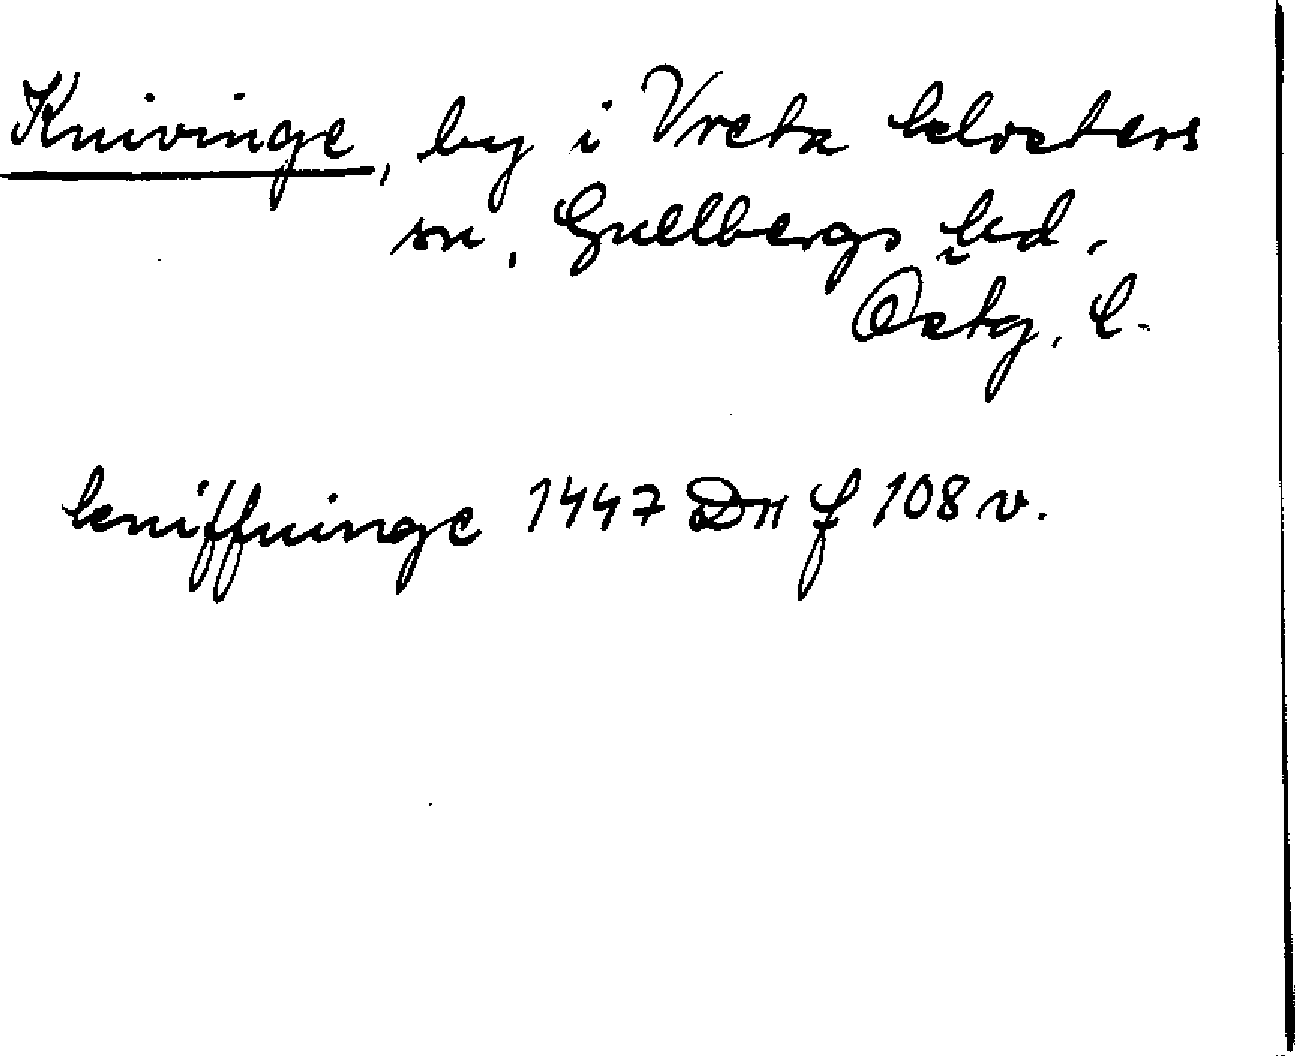 Knivinge, by i Vreta klosters
sn, Gullbergs hd.
Östg. l.
kniffuinge 1447 D11 f 108 v.